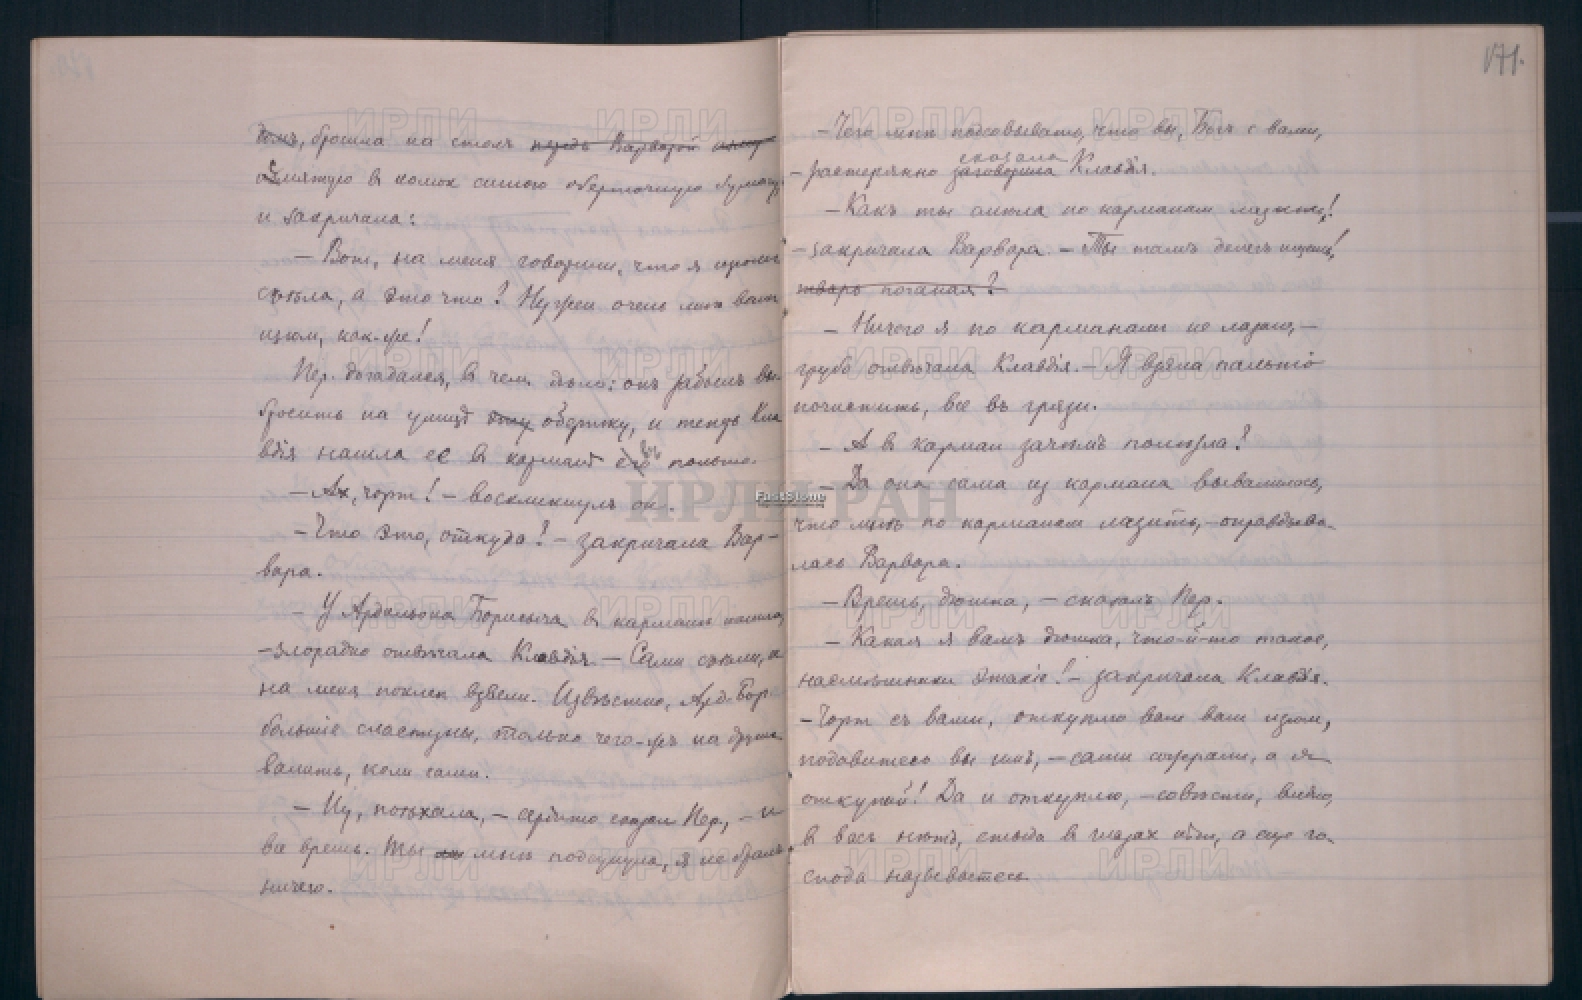 171.
томъ, бросила на столъ предъ Варварой
смятую в комок синюю оберточную бумагу
и закричала:
— Вот, на меня говорили, что я изюмъ
съѣла, а это что? Нужен очень мнѣ ваш
изюм, как-же!
Пер. догадался, в чем дѣло: онъ забылъ вы-
бросить на улицѣ обертку, и теперь Кла
вдія нашла ее в карманѣ пальто.
— Ах, чорт! — воскликнулъ он.
— Что это, откуда? — закричала Вар-
вара.
— У Ардальона Борисыча в карманѣ нашла,
— злорадно отвѣчала Клавдія — Сами съѣли, а
на меня поклеп взвели. Извѣстно, Ард. Бор.
большіе сластуны, только чего-жъ на других
валить, коли сами.
— Ну, поѣхала, — сердито сказал Пер., — и
все врешь. Ты мнѣ подсунула, я не бралъ
ничего.
— Чего мнѣ подсовывать, что вы, Богъ с вами,
сказала
— растерянно заговорила Клавдія.
— Какъ ты смѣла по карманам лазить!
— закричала Варвара — Ты тамъ денегъ ищешь!
тварь поганая?
— Ничего я по карманам не лазаю, —
грубо отвѣчала Клавдія. — Я взяла пальто
почистить, все въ грязи.
— А в карман зачѣмъ полѣзла?
— Да она сама из кармана вывалилась,
что мнѣ по карманам лазить, — оправдыва-
лась Варвара.
— Врешь, дюшка, — сказалъ Пер.
— Какая я вамъ дюшка, что-й-то такое,
насмѣшники этакіе! — закричала Клавдія.
— Чорт съ вами, откуплю вам ваш изюм,
подавитесь вы имъ, — сами сожрали, а я
откупай! Да и откуплю, — совѣсти, видно,
в васъ нѣтъ, стыда в глазах нѣт, а еще го-
спода называетесь
ИРЛИ РАН
FastStone
ИРЛИ ИРЛИ ИРЛИ ИРЛИ
ИРЛИ ИРЛИ ИРЛИ ИРЛИ
ИРЛИ ИРЛИ ИРЛИ ИРЛИ
ИРЛИ ИРЛИ ИРЛИ ИРЛИ